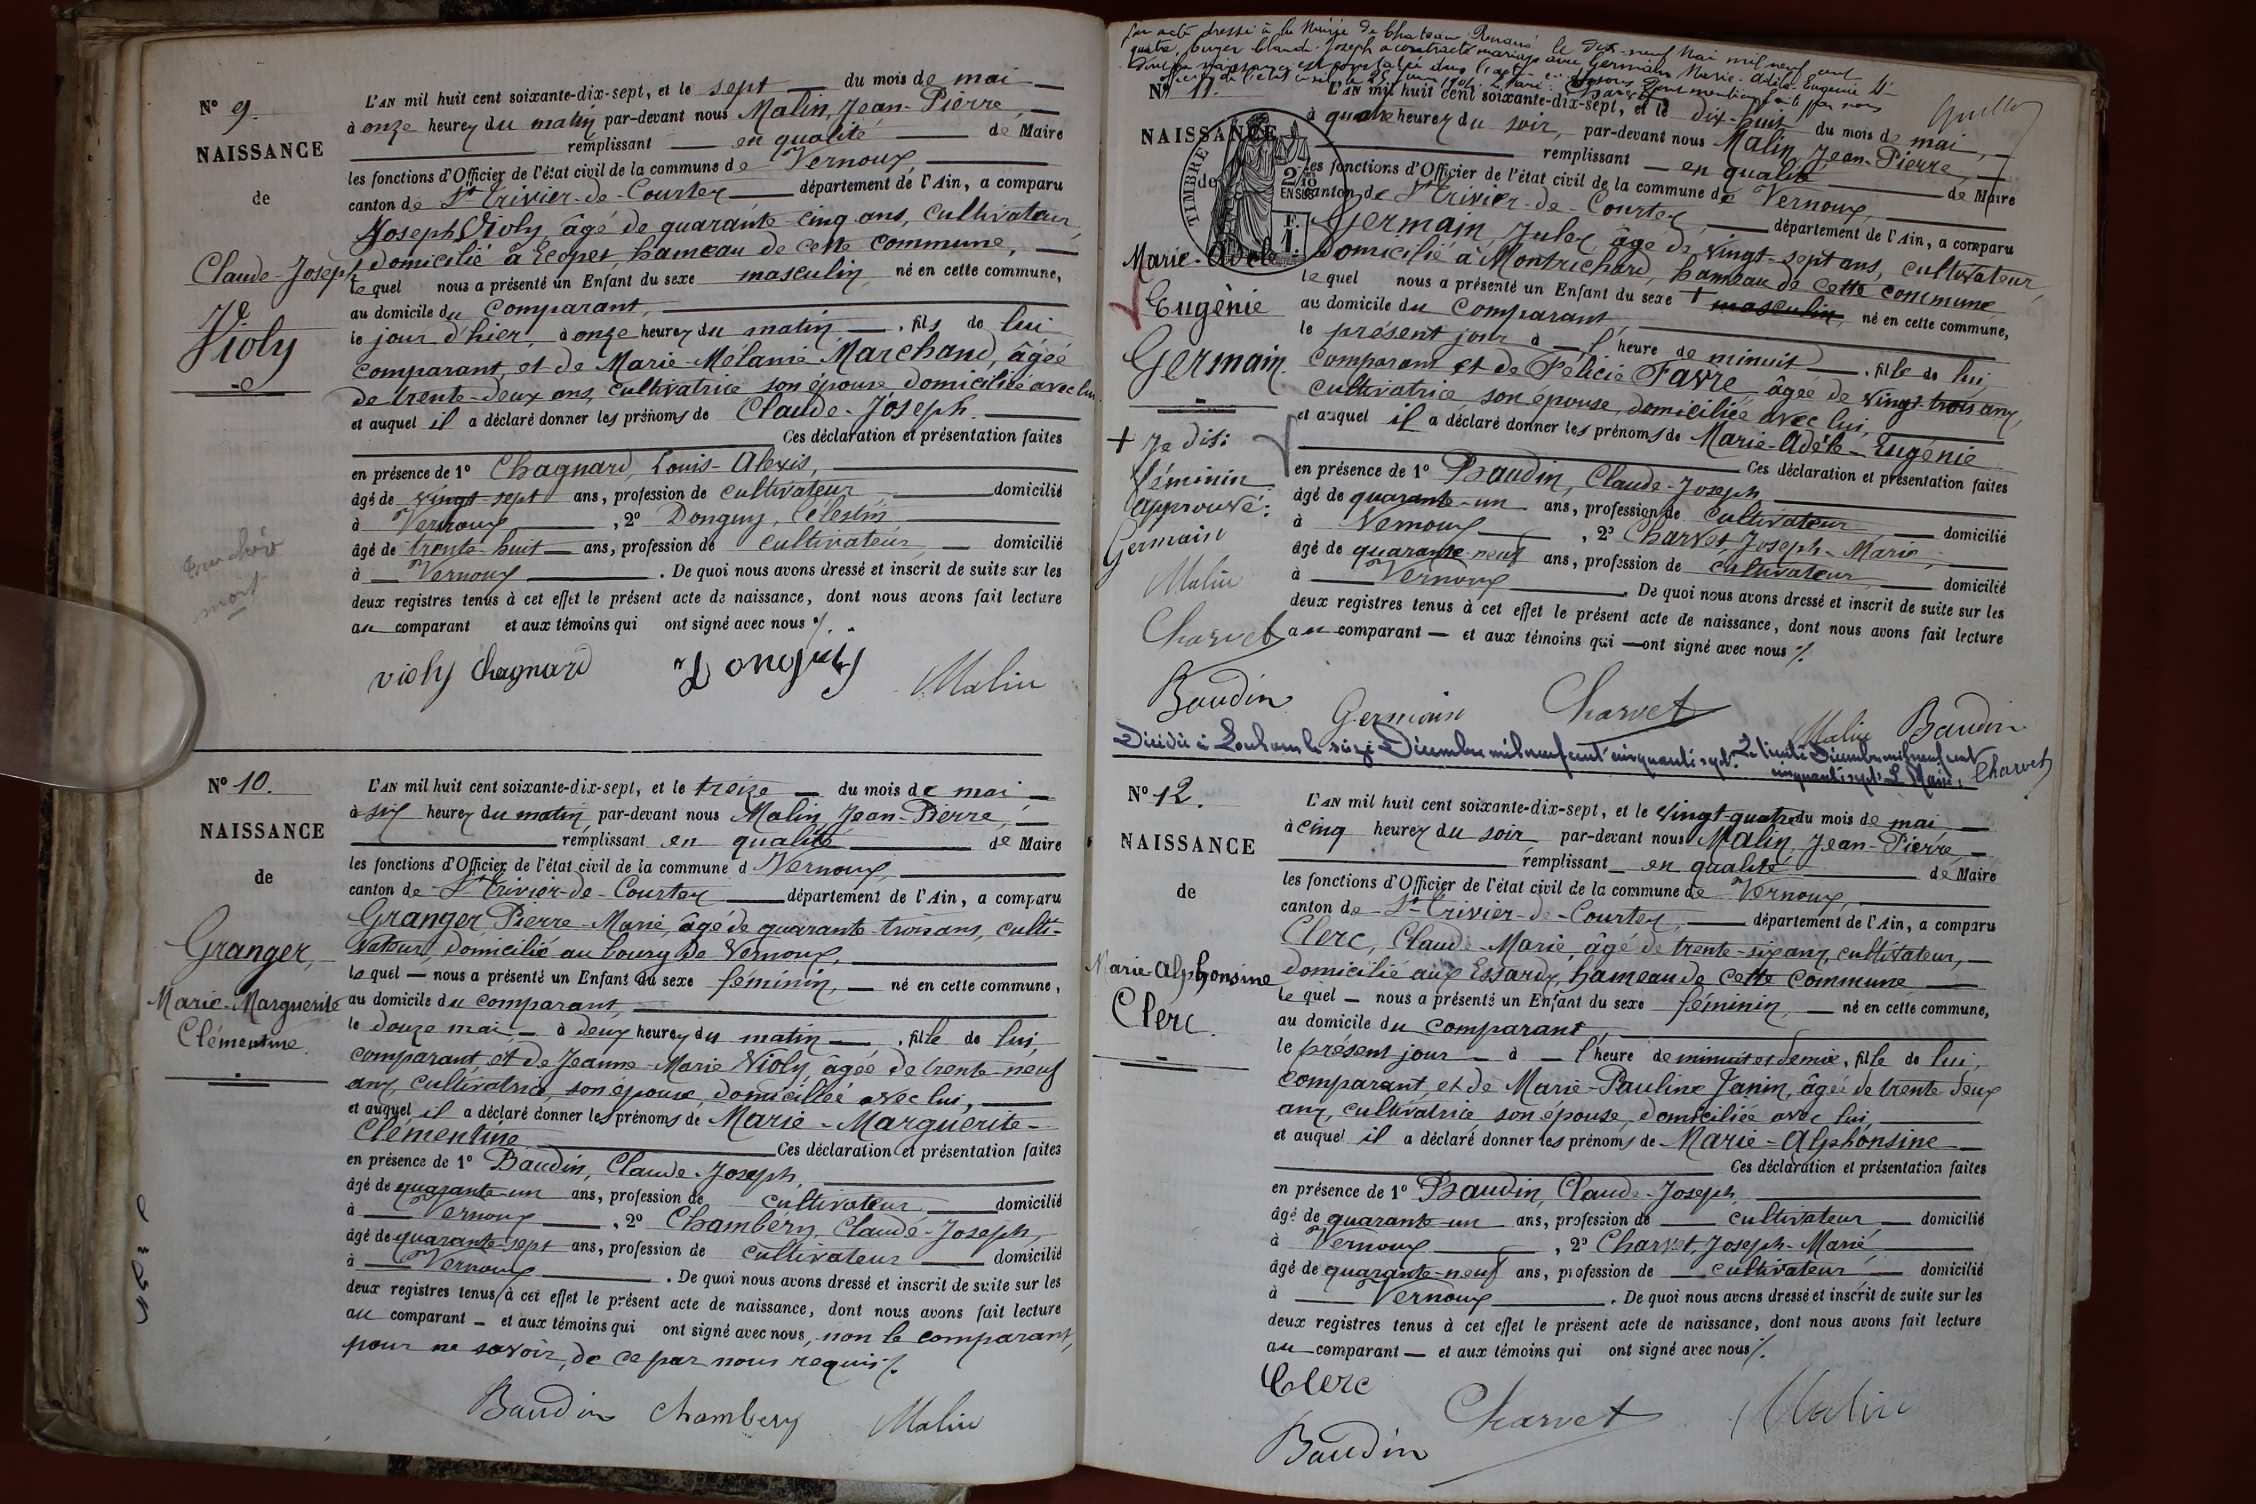 N° 9.
NAISSANCE
de
Claude-Joseph
Violy
L'AN mil huit cent soixante-dix-sept, et le sept du mois de mai
à onze heures du matin par-devant nous Malin, Jean-Pierre,
remplissant en qualité de Maire
les fonctions d'Officier de l'état civil de la commune de Vernoux,
canton de St Trivier-de-Courtes département de l'Ain, a comparu
Joseph Violy, âgé de quarante-cinq ans, cultivateur,
domicilié à Ecopet hameau de cette commune,
le quel nous a présenté un Enfant du sexe masculin, né en cette commune,
au domicile du comparant,
le jour d'hier, à onze heures du matin, fils de lui
comparant, et de Marie-Mélanie Marchand, âgée
de trente-deux ans, cultivatrice son épouse domiciliée avec lui
et auquel il a déclaré donner les prénoms de Claude-Joseph.
Ces déclaration et présentation faites
en présence de 1° Chagnard, Louis-Alexis,
âgé de vingt-sept ans, profession de cultivateur domicilié
à Vernoux, 2° Donguy, Célestin,
âgé de trente-huit ans, profession de cultivateur, domicilié
à Vernoux. De quoi nous avons dressé et inscrit de suite sur les
deux registres tenus à cet effet le présent acte de naissance, dont nous avons fait lecture
au comparant et aux témoins qui ont signé avec nous
violy Chagnard Donguy Malin
mort
N° 10.
NAISSANCE
de
Granger,
Marie-Marguerite
Clémentine.
L'AN mil huit cent soixante-dix-sept, et le treize du mois de mai,
à six heures du matin, par-devant nous Malin, Jean-Pierre,
remplissant en qualité de Maire
les fonctions d'Officier de l'état civil de la commune d Vernoux,
canton de St Trivier-de-Courtes département de l'Ain, a comparu
Granger, Pierre-Marie, âgé de quarante-trois ans, culti-
vateur, domicilié au bourg de Vernoux,
le quel nous a présenté un Enfant du sexe féminin, né en cette commune,
au domicile du comparant,
le douze mai, à deux heures du matin, fille de lui,
comparant, et de Jeanne-Marie Violy, âgée de trente-neuf
ans, cultivatrice, son épouse, domiciliée avec lui,
et auquel il a déclaré donner les prénoms de Marie-Marguerite-
Clémentine
Ces déclaration et présentation faites
en présence de 1° Baudin, Claude-Joseph,
âgé de quarante-un ans, profession de cultivateur domicilié
à Vernoux, 2° Chambéry, Claude-Joseph,
âgé de quarante-sept ans, profession de cultivateur domicilié
à Vernoux. De quoi nous avons dressé et inscrit de suite sur les
deux registres tenus à cet effet le présent acte de naissance, dont nous avons fait lecture
au comparant et aux témoins qui ont signé avec nous, non le comparant,
pour ne savoir, de ce par nous requis
Baudin Chambery Malin
Par acte dressé à la Mairie de Chateau Renaud le dix-neuf Mai mil neuf cent
quatre, Joseph a contracté mariage avec Germain Marie-Adèle-Eugénie
dont la naissance est constatée dans l'acte ci-dessous dont mention faite par nous
Guillon
N° 11.
NAISSANCE
de
TIMBRE
2/10
EN SUS
F.
1.
Marie-Adèle
Eugénie
Germain
+ Je dis:
féminin.
approuvé:
Germain
Malin
Charvet
Baudin
L'AN mil huit cent soixante-dix-sept, et le dix-huit du mois de mai,
à quatre heures du soir, par-devant nous Malin, Jean-Pierre,
remplissant en qualité de Maire
les fonctions d'Officier de l'état civil de la commune de Vernoux,
canton de St Trivier-de-Courtes département de l'Ain, a comparu
Germain, Jules, âgé de vingt-sept ans, cultivateur,
domicilié à Montrichard, hameau de cette commune
le quel nous a présenté un Enfant du sexe + masculin, né en cette commune,
au domicile du comparant,
le présent jour à l'heure de minuit, fille de lui,
comparant et de Félicie Favre, âgée de vingt-trois ans,
cultivatrice son épouse, domiciliée avec lui,
et auquel il a déclaré donner les prénoms de Marie-Adèle-Eugénie
Ces déclaration et présentation faites
en présence de 1° Baudin, Claude-Joseph
âgé de quarante-un ans, profession de cultivateur, domicilié
à Vernoux, 2° Charvet, Joseph-Marie,
âgé de quarante-neuf ans, profession de cultivateur domicilié
à Vernoux. De quoi nous avons dressé et inscrit de suite sur les
deux registres tenus à cet effet le présent acte de naissance, dont nous avons fait lecture
au comparant et aux témoins qui ont signé avec nous
Germain Charvet Malin Baudin
Décédée à Louhans le seize Décembre mil neuf cent cinquante sept. Le trente Décembre mil neuf cent
cinquante sept. Le Maire, Charvet
N° 12.
NAISSANCE
de
Marie Alphonsine
Clerc.
L'AN mil huit cent soixante-dix-sept, et le vingt-quatre du mois de mai,
à cinq heures du soir, par-devant nous Malin, Jean-Pierre,
remplissant en qualité de Maire
les fonctions d'Officier de l'état civil de la commune de Vernoux,
canton de St Trivier-de-Courtes, département de l'Ain, a comparu
Clerc, Claude-Marie, âgé de trente-six ans, cultivateur,
domicilié aux Essards, hameau de cette commune
le quel nous a présenté un Enfant du sexe féminin, né en cette commune,
au domicile du comparant,
le présent jour à l'heure de minuit et demie, fille de lui,
comparant, et de Marie-Pauline Janin, âgée de trente-deux
ans, cultivatrice son épouse, domiciliée avec lui,
et auquel il a déclaré donner les prénoms de Marie-Alphonsine
Ces déclaration et présentation faites
en présence de 1° Baudin, Claude-Joseph,
âgé de quarante-un ans, profession de cultivateur domicilié
à Vernoux, 2° Charvet, Joseph-Marie,
âgé de quarante-neuf ans, profession de cultivateur domicilié
à Vernoux. De quoi nous avons dressé et inscrit de suite sur les
deux registres tenus à cet effet le présent acte de naissance, dont nous avons fait lecture
au comparant et aux témoins qui ont signé avec nous
Clerc Charvet Malin
Baudin